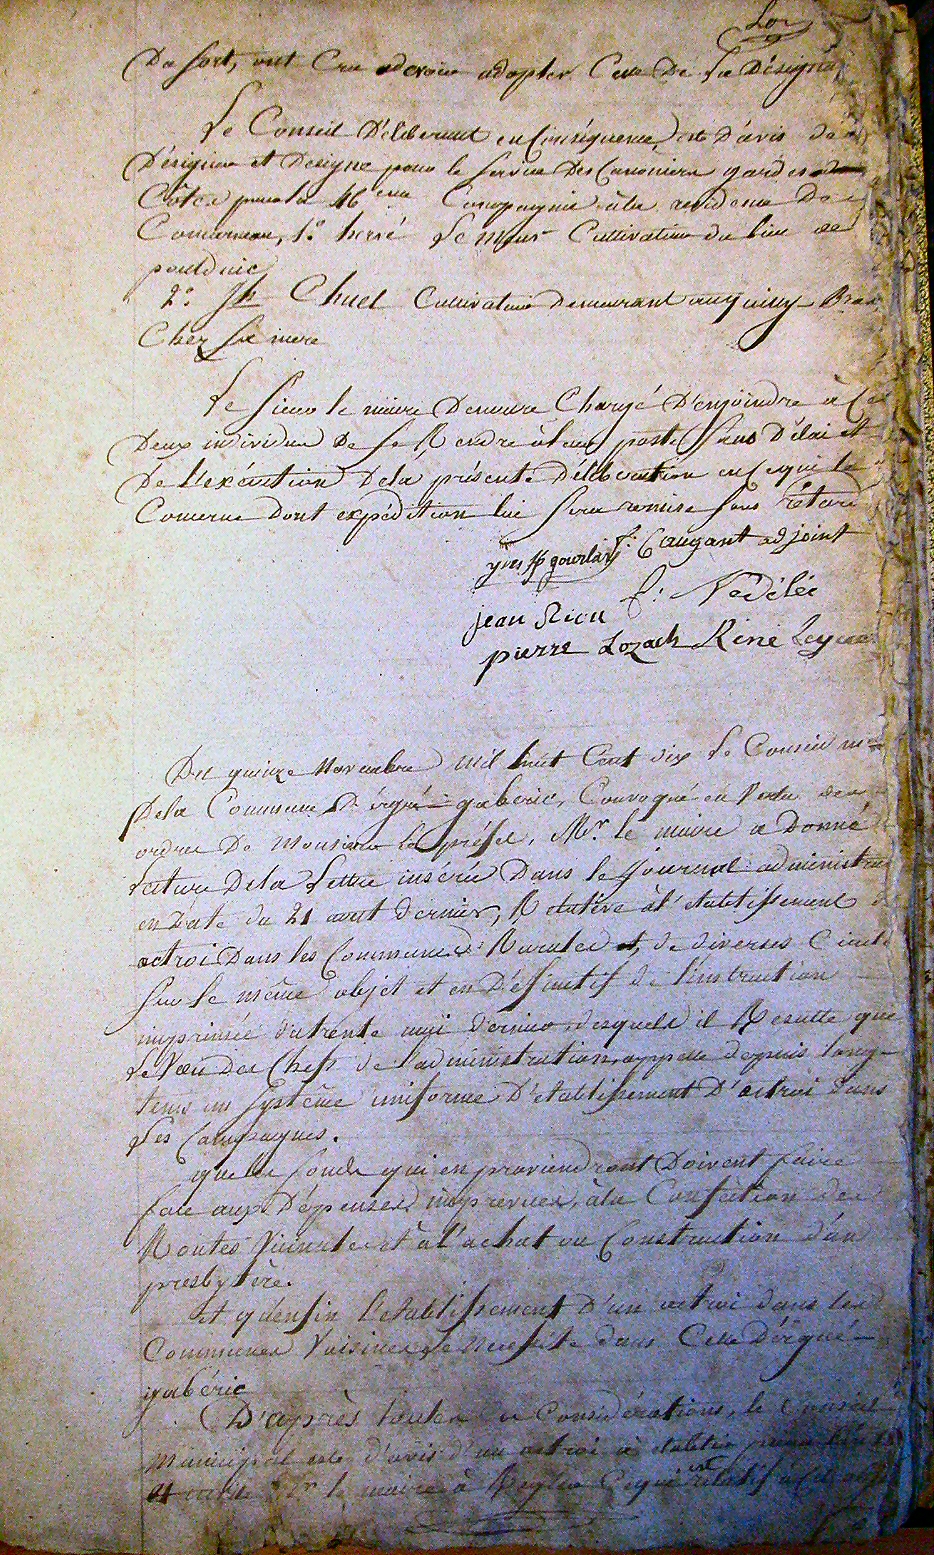 Du sort, ont Cru devoir adopter Celle De La Désigna
Le Conseil Déliberant en Conséquence est D'avis de
Désigner et Designe pour le Service Des Canoniers gardes
Côtes pour la 46eme Compagnie à la residence De
Concarneau, 1.° hervé Le Meur Cultivateur du lieu de
pouldnic
2.° Jh Chuet Cultivateur Demeurant au quilly Bras
Chez Sa mere
Le Sieur le maire Demeure Chargé D'enjoindre à Ces
Deux individus De Se Rendre à leur poste Sans Délai et
De L'exécution De la présente Délibération en Ce qui le
Concerne Dont expédition lui Sera remise Sans rétard
yves gourlay f: Caugant adjoint
jean Riou f: Nédélec
pierre Lozach Réné
Du quinze Novembre mil huit Cent dix Le Conseil m
De la Commune D'érgué-gabéric, Convoqué en Vertu des
ordres De Monsieur Le préfet, Mr. le maire a Donné
Lecture De la Lettre insérée Dans le Journal administra
en Date du 21 aout dernier, Relative à l'etablissement d
octroi Dans les Communes Rurales et, de diverses Circul
Sur le même objet et en Définitif de l'instruction
imprimée du trente mai dernier desquels il Resulte que
Le Voeu des Chefs de l'administration appelle depuis long-
tems un Systême uniforme D'etablissement D'octroi dans
Les Campagnes.
que les fonds qui en proviendront Doivent faire
face aux Dépenses imprevues, à la Confection des
Routes Vicinales et à l'achat ou Construction d'un
presbytère.
et qu'enfin l'etablissement D'un octroi dans les
Communes Voisines Le necessite dans Celle D'érgué-
gabéric
D'après toutes Ces Considérations, le Conseil
Municipal est d'avis d'un octroi à etablir pour
Mr. le maire à Regler Ce qui est relatif à